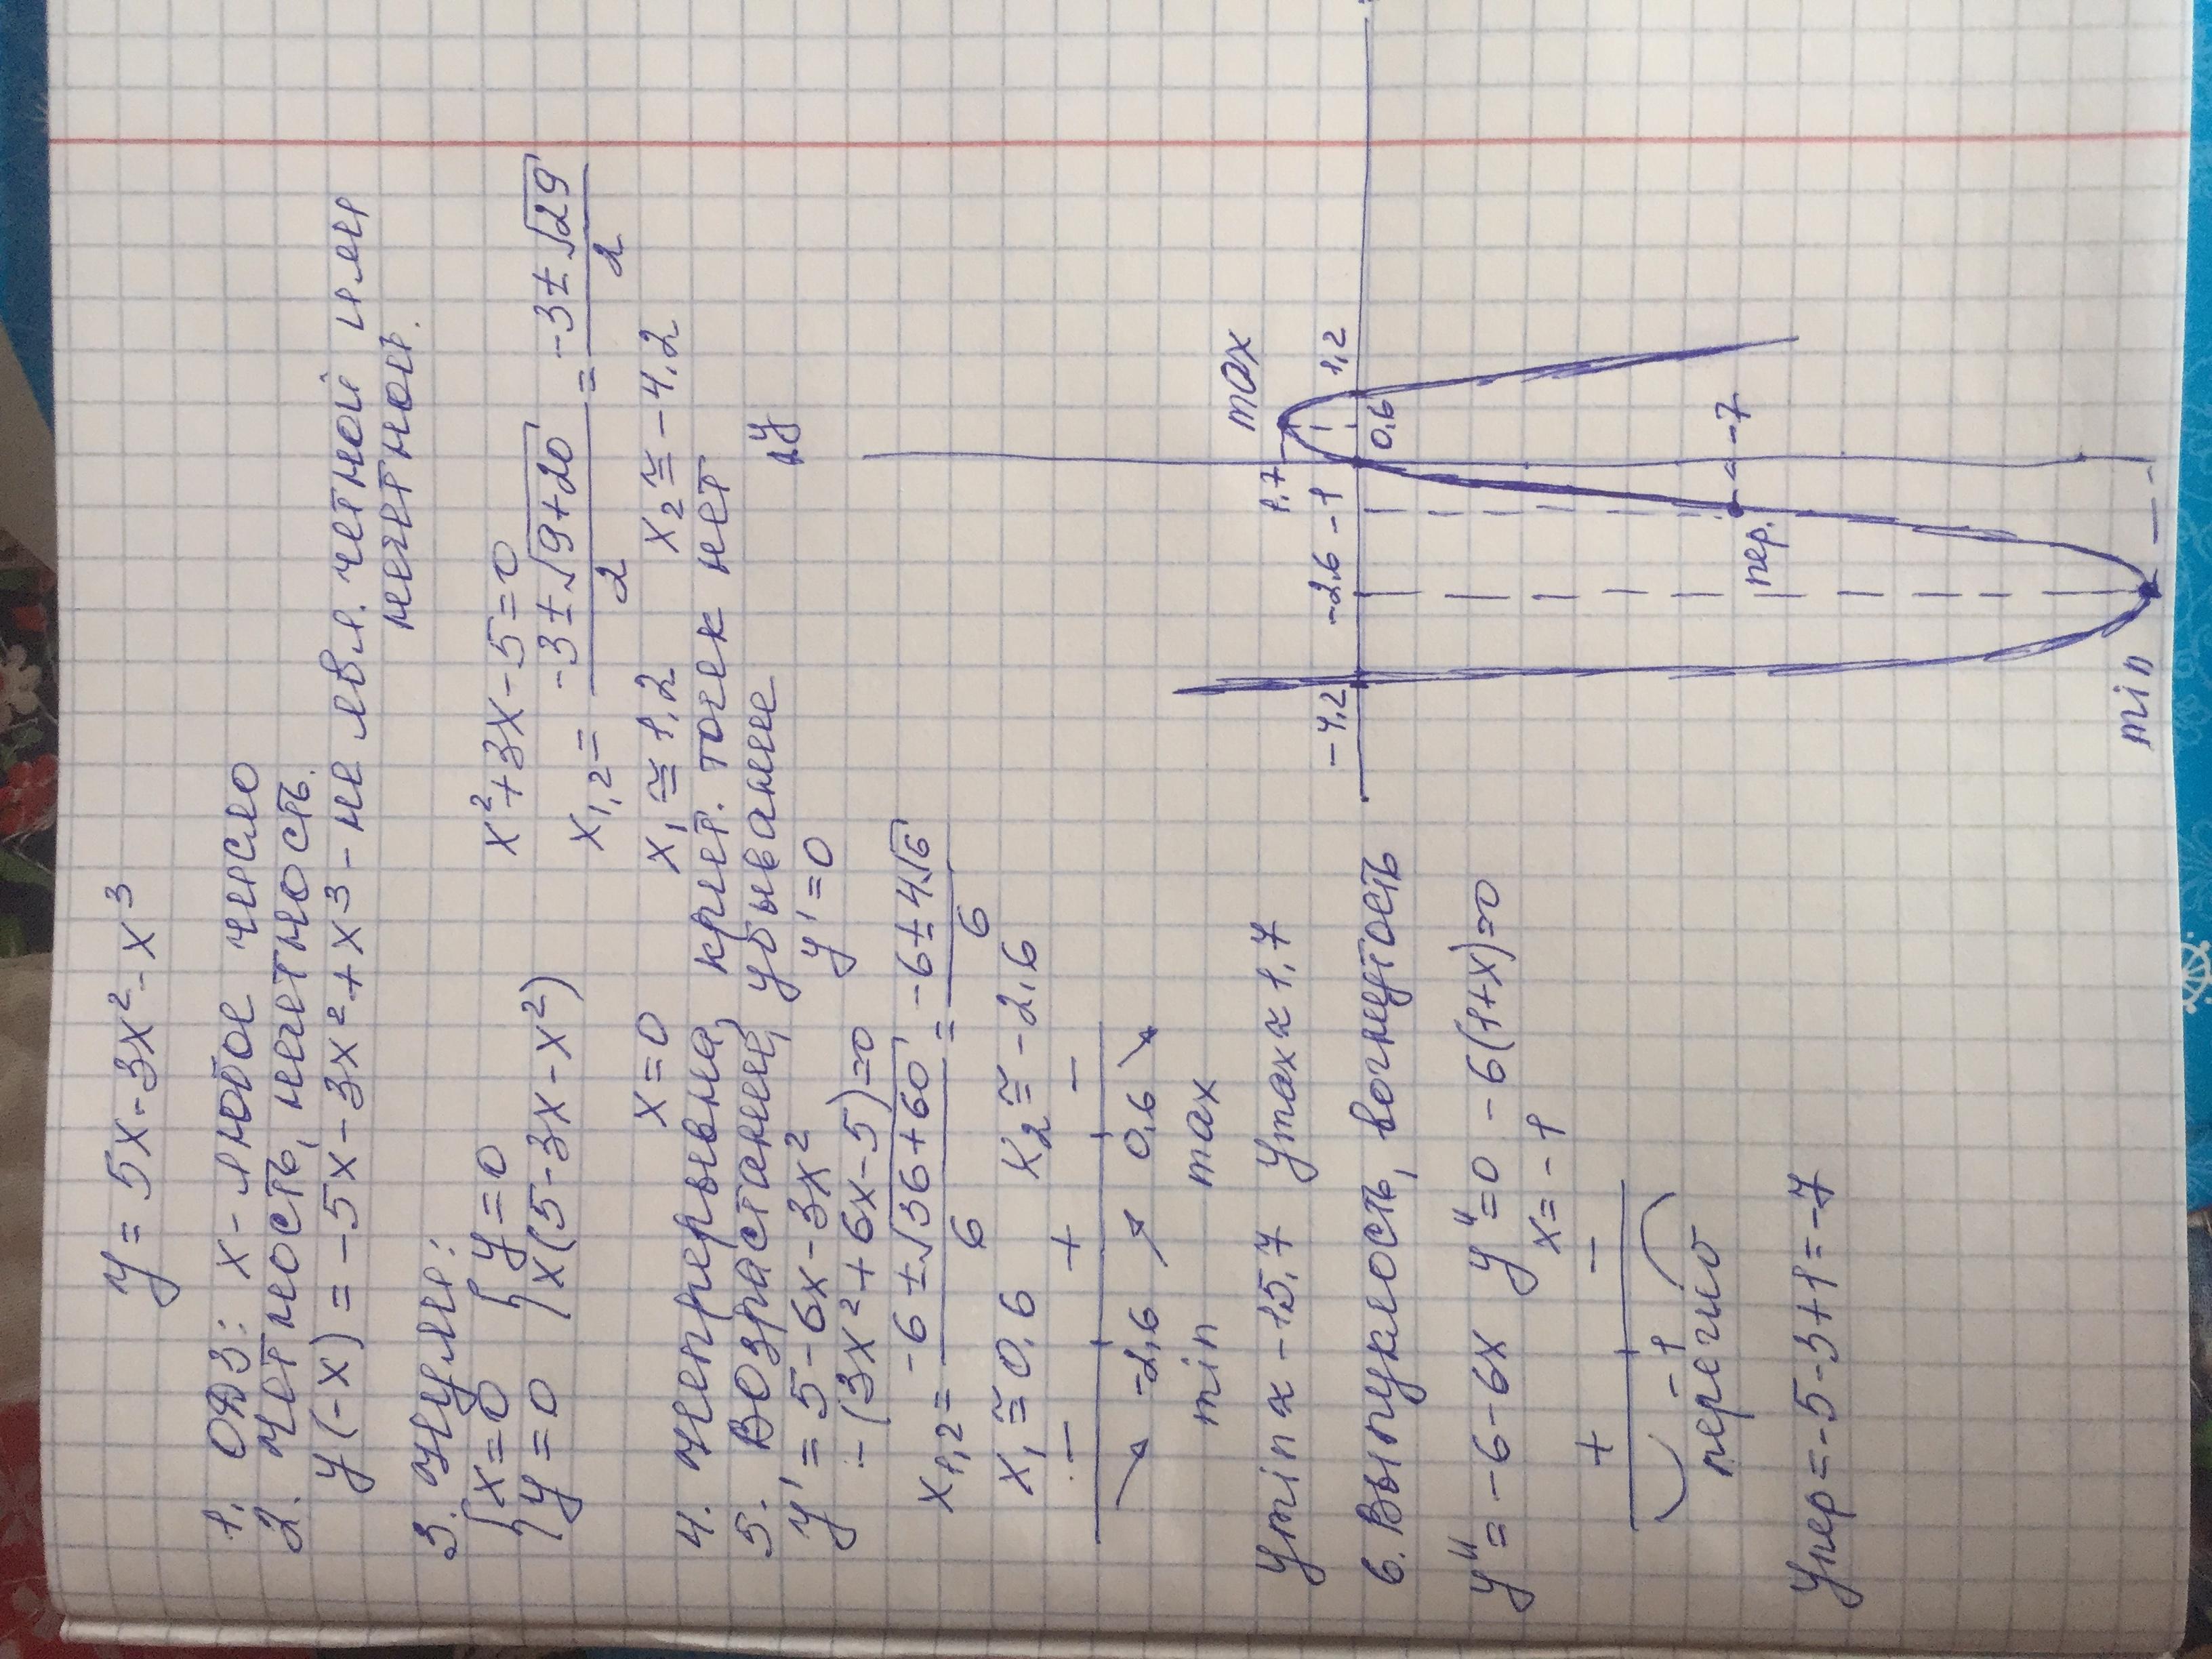 y = 5x - 3x² - x³
1. ОДЗ: x - любое число
2. Четность, нечетность.
y(-x) = -5x - 3x² + x³ - не явл. четной или
нечетной.
3. Нули:
{x=0 {y=0 x²+3x-5=0
{y=0 {x(5-3x-x²) x₁,₂ = (-3±√(9+20))/2 = (-3±√29)/2
x=0 x₁≅1,2 x₂≅-4,2
4. Непрерывна, крит. точек нет
5. Возрастание, убывание
y' = 5-6x-3x² y'=0
-(3x²+6x-5)=0
x₁,₂ = (-6±√(36+60))/6 = (-6±4√6)/6
x₁≅0,6 x₂≅-2,6
- + -
-2,6 0,6
min max
ymin≈-15,7 ymax≈1,7
6. Выпуклость, вогнутость
y''=-6-6x y''=0 -6(1+x)=0
x=-1
+ -
-1
перегиб
yпер=-5-3+1=-7
y
max
1,7
-4,2 -2,6 -1 0,6 1,2
-7
пер.
min